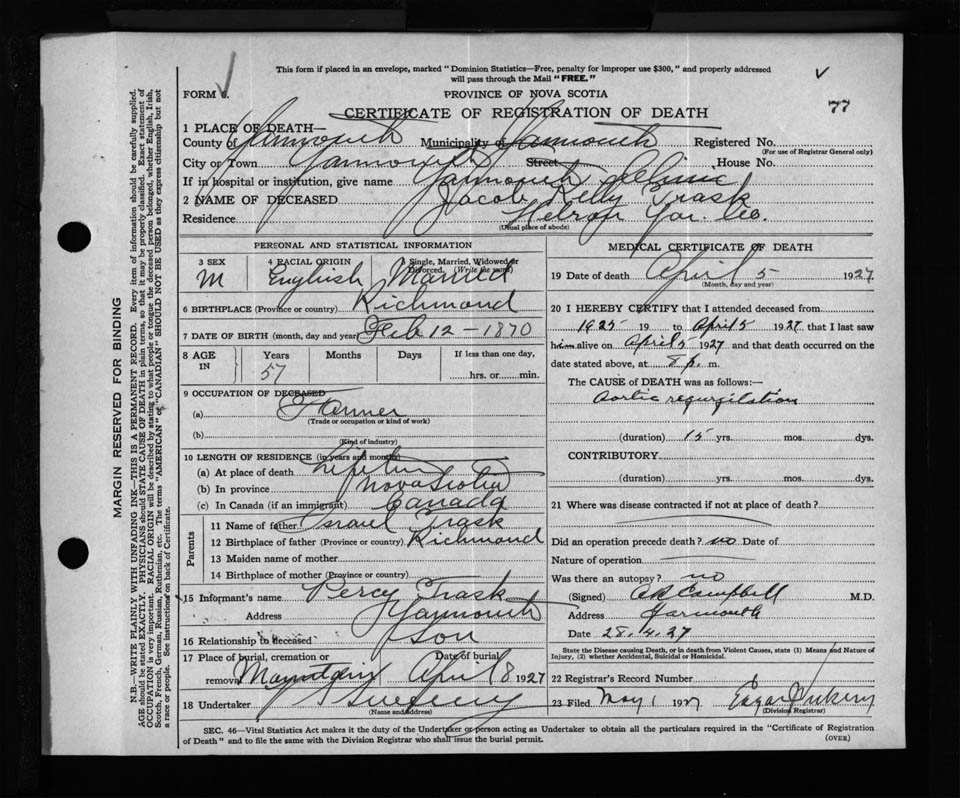 This form if placed in an envelope, marked "Dominion Statistics—Free, penalty for improper use $300," and properly addressed
will pass through the Mail "FREE."
FORM 6.
PROVINCE OF NOVA SCOTIA
77
CERTIFICATE OF REGISTRATION OF DEATH
1 PLACE OF DEATH—
County of Yarmouth Municipality of Yarmouth Registered No.
(For use of Registrar General only)
City or Town Yarmouth Street House No.
If in hospital or institution, give name Yarmouth Clinic
2 NAME OF DECEASED Jacob Kelly Trask
Residence Hebron Yar. Co.
(Usual place of abode)
PERSONAL AND STATISTICAL INFORMATION
3 SEX
M
4 RACIAL ORIGIN
English
5 Single, Married, Widowed or Divorced. (Write the word)
Married
6 BIRTHPLACE (Province or country) Richmond
7 DATE OF BIRTH (month, day and year) Feb 12-1870
8 AGE IN
Years Months Days If less than one day,
57 hrs. or min.
9 OCCUPATION OF DECEASED
(a) Farmer
(Trade or occupation or kind of work)
(b)
(Kind of industry)
10 LENGTH OF RESIDENCE (in years and months)
(a) At place of death Lifetime
(b) In province Nova Scotia
(c) In Canada (if an immigrant) Canada
Parents
11 Name of father Israel Trask
12 Birthplace of father (Province or country) Richmond
13 Maiden name of mother
14 Birthplace of mother (Province or country)
15 Informant's name Percy Trask
Address Yarmouth
16 Relationship to deceased Son
17 Place of burial, cremation or Date of burial
removal April 8 1927
18 Undertaker Sweeny
(Name and address)
MEDICAL CERTIFICATE OF DEATH
19 Date of death April 5 1927
(Month, day and year)
20 I HEREBY CERTIFY that I attended deceased from
1925 19 to April 5 1927 that I last saw
him alive on April 5 1927 and that death occurred on the
date stated above, at 8 p. m.
The CAUSE OF DEATH was as follows:—
Aortic regurgitation
(duration) 15 yrs. mos. dys.
CONTRIBUTORY
(duration) yrs. mos. dys.
21 Where was disease contracted if not at place of death?
Did an operation precede death? no Date of
Nature of operation
Was there an autopsy? no
(Signed) Campbell M.D.
Address Yarmouth
Date 28.4.27
State the Disease causing Death, or in death from Violent Causes, state (1) Means and Nature of
Injury, (2) whether Accidental, Suicidal or Homicidal.
22 Registrar's Record Number 6
23 Filed May 1 1927 Edgar
(Division Registrar)
SEC. 46—Vital Statistics Act makes it the duty of the Undertaker or person acting as Undertaker to obtain all the particulars required in the "Certificate of Registration
of Death" and to file the same with the Division Registrar who shall issue the burial permit.
(OVER)
MARGIN RESERVED FOR BINDING
N.B.—WRITE PLAINLY WITH UNFADING INK—THIS IS A PERMANENT RECORD. Every item of information should be carefully supplied.
AGE should be stated EXACTLY. PHYSICIANS should STATE CAUSE OF DEATH in plain terms, so that it may be properly classified. Exact statement of
OCCUPATION is very important. RACIAL ORIGIN will be described by stating to what people or tongue the deceased person belonged, whether English, Irish,
Scotch, French, German, Russian, Ruthenian, etc. The terms "AMERICAN" or "CANADIAN" SHOULD NOT BE USED as they express citizenship but not
a race or people. See instructions on back of Certificate.